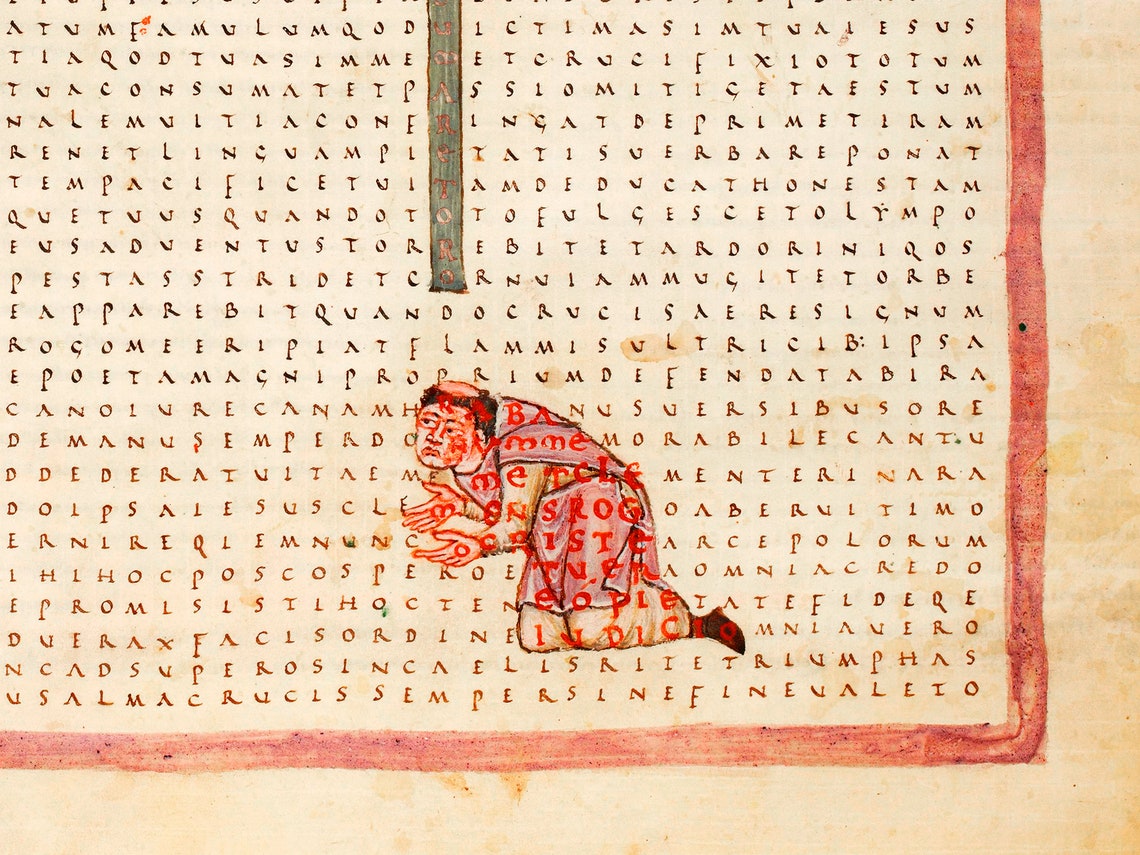 ATUMFAMULUMQODUICTIMASIMTUAIESUS
TIAQODTUASIMMEMETCRUCIFIXIOTOTUM
TUACONSUMATETPASSIOMITIGETAESTUM
NALEMUITIACONFRINGATDEPRIMETIRAM
RENETLINGUAMPIETATISUERBAREPONAT
TEMPACIFICETUITAMDEDUCATHONESTAM
QUETUUSQUANDOTOTOFULGESCETOLYMPO
EUSADUENTUSTORREBITETARDORINIQOS
PESTASSTRIDETCORNUIAMMUGITETORBE
EAPPAREBITQUANDOCRUCISAERESIGNUM
ROGOMEERIPIATFLAMMISULTRICIB:IPSA
EPOETAMAGNIPROPRIUMDEFENDATABIRA
CANOIURECANAMHRABANUSUERSIBUSORE
DEMANUSEMPERDONUMMEMORABILECANTU
DDEDERATUITAEMEMETCLEMENTERINARA
DOIPSAIESUSCLEMENSROGOABERUITIMO
ERNIREQIEMNUNCOCRISTEARCEPOLORUM
IHIHOCPOSCOSPEROETUERAOMNIACREDO
EPROMISISTIHOCTENEOPIETATEFIDEQE
DUERAXFACISORDINEIUDICIOMNIAUERO
NCADSUPEROSINCAELISRITETRIUMPHAS
USALMACRUCISSEMPERSINEFINEUALETO